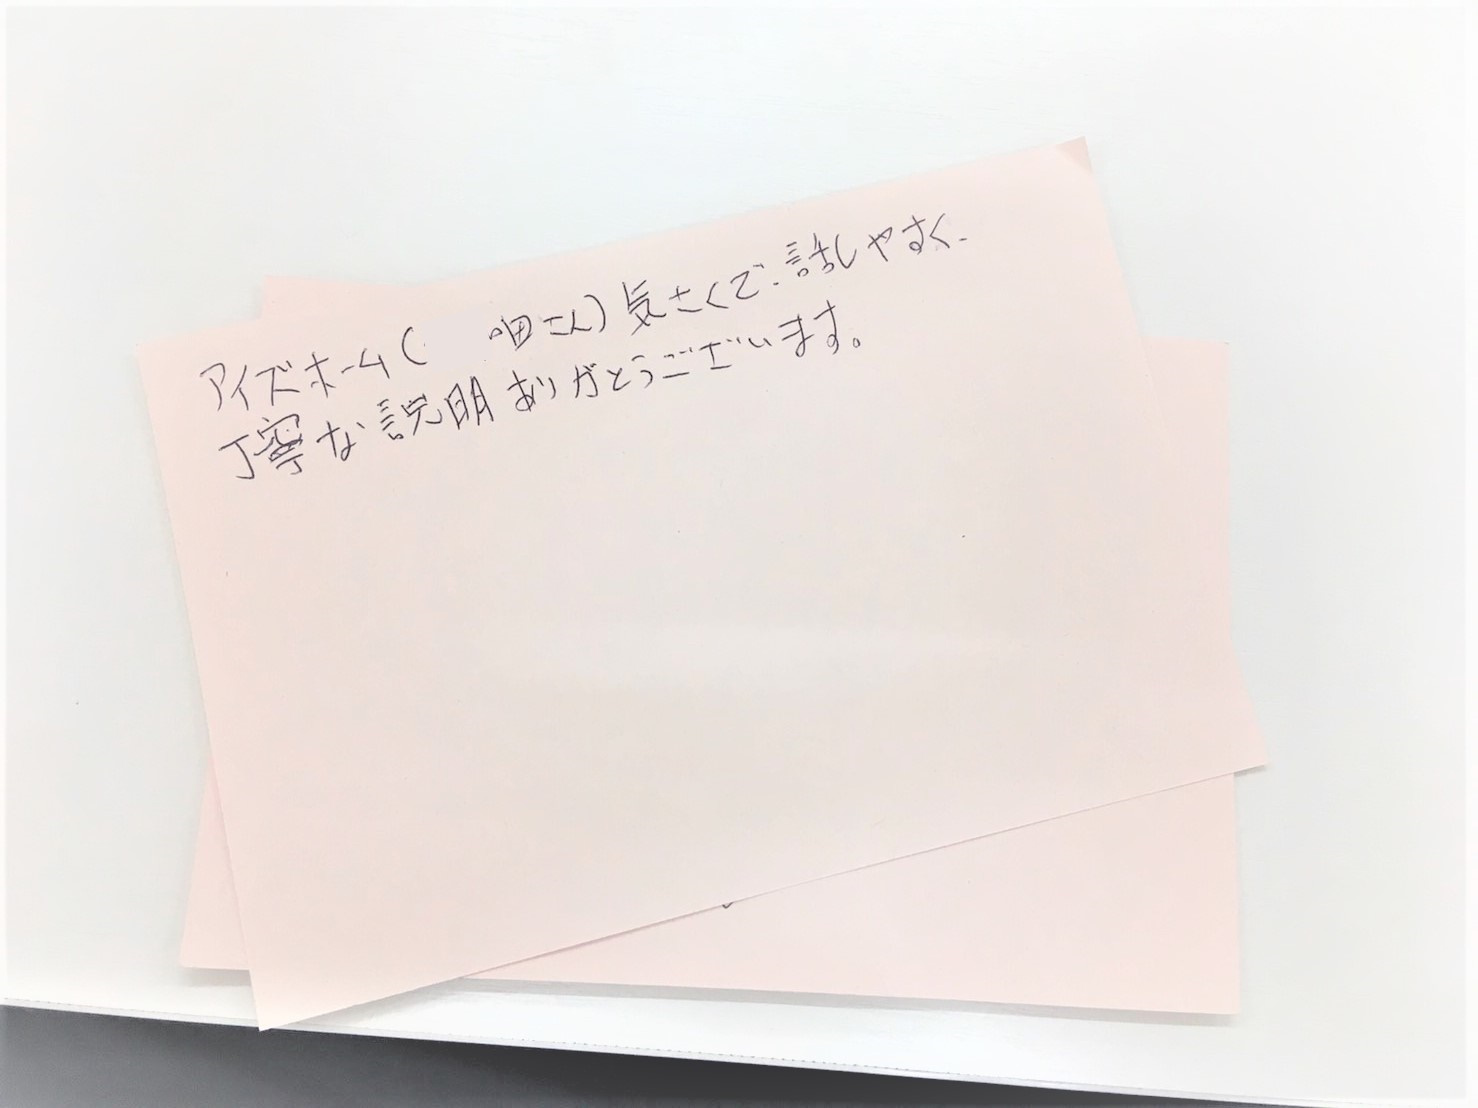 アイズホーム(　　さん)気さくで、話しやすく、
丁寧な説明ありがとうございます。